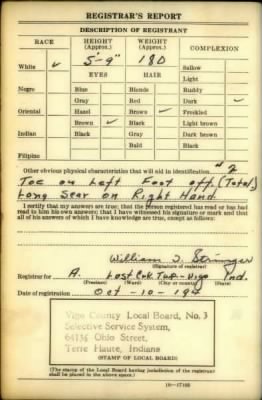 REGISTRAR'S REPORT
DESCRIPTION OF REGISTRANT
RACE HEIGHT (Approx.) WEIGHT (Approx.) COMPLEXION
White ✓ 5'-9" 180 Sallow
EYES HAIR Light
Negro Blue Blonde Ruddy
Gray Red Dark ✓
Oriental Hazel Brown ✓ Freckled
Brown ✓ Black Light brown
Indian Black Gray Dark brown
Bald Black
Filipino
Other obvious physical characteristics that will aid in identification # 2
Toe on Left Foot off. (Total)
Long Scar on Right Hand
I certify that my answers are true; that the person registered has read or has had
read to him his own answers; that I have witnessed his signature or mark and that
all of his answers of which I have knowledge are true, except as follows:
William Stringer
(Signature of registrar)
Registrar for A. Lost Crk Twp - Vigo Ind.
(Precinct) (Ward) (City or county) (State)
Date of registration Oct - 10 - 194
Vigo County Local Board, No. 3
Selective Service System,
Ohio Street,
Terre Haute, Indiana
(STAMP OF LOCAL BOARD)
(The stamp of the Local Board having jurisdiction of the registrant
shall be placed in the above space.)
16—17105